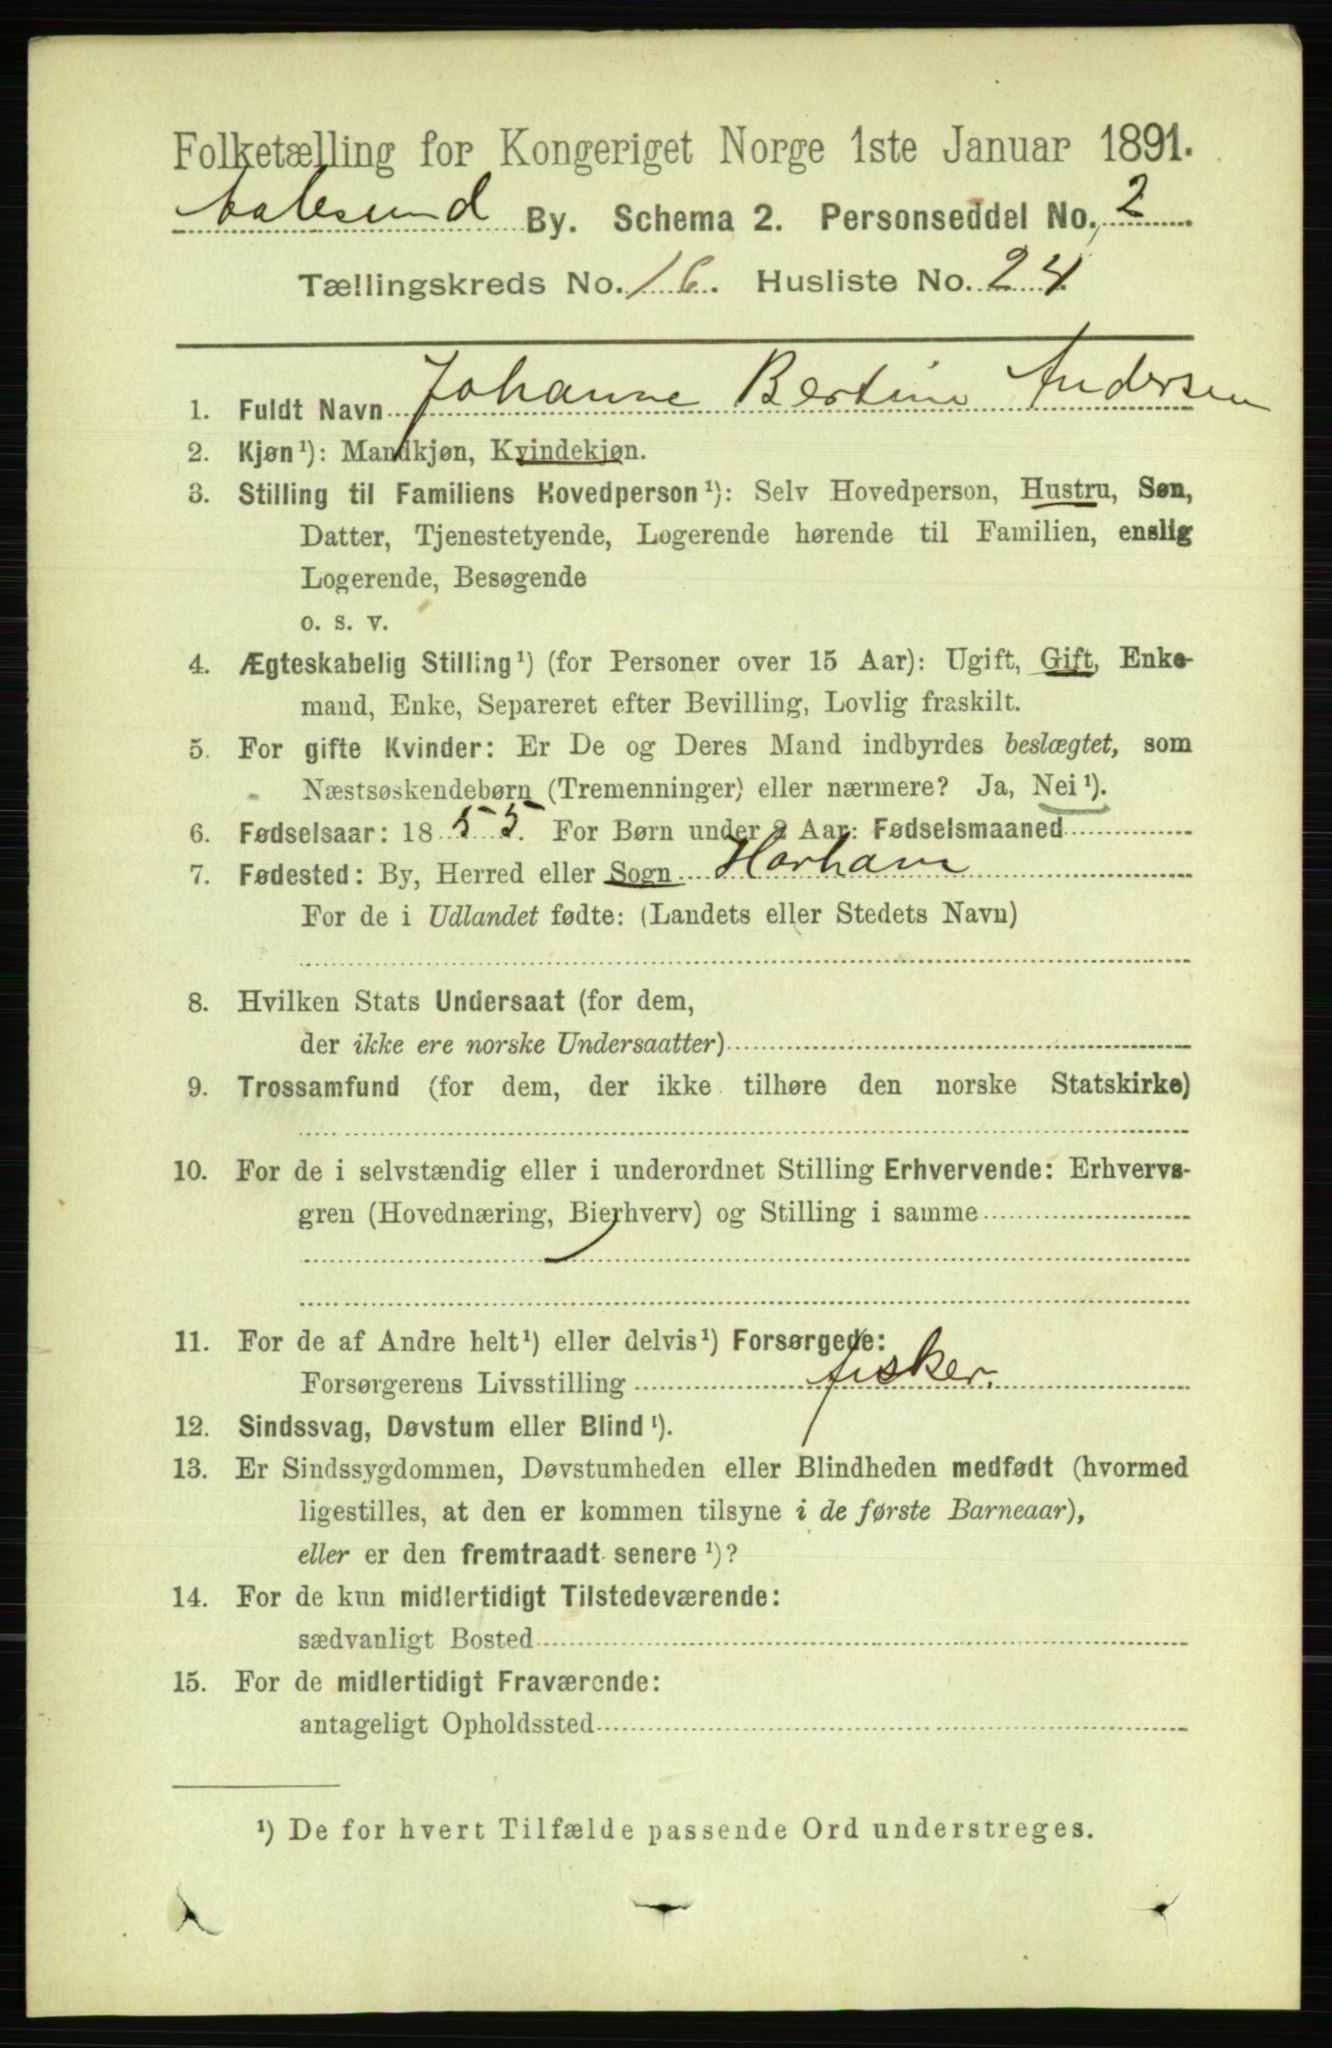 Folketælling for Kongeriget Norge 1ste Januar 1891.
Aalesund By. Schema 2. Personseddel No. 2
Tællingskreds No. 16. Husliste No. 24
1. Fuldt Navn Johanne Bertine Andersen
2. Kjøn¹): Mandkjøn, Kvindekjøn.
3. Stilling til Familiens Hovedperson¹): Selv Hovedperson, Hustru, Søn,
Datter, Tjenestetyende, Logerende hørende til Familien, enslig
Logerende, Besøgende
o. s. v.
4. Ægteskabelig Stilling¹) (for Personer over 15 Aar): Ugift, Gift, Enke-
mand, Enke, Separeret efter Bevilling, Lovlig fraskilt.
5. For gifte Kvinder: Er De og Deres Mand indbyrdes beslægtet, som
Næstsøskendebørn (Tremenninger) eller nærmere? Ja, Nei¹).
6. Fødselsaar: 1855. For Børn under 2 Aar: Fødselsmaaned
7. Fødested: By, Herred eller Sogn Harham
For de i Udlandet fødte: (Landets eller Stedets Navn)
8. Hvilken Stats Undersaat (for dem,
der ikke ere norske Undersaatter)
9. Trossamfund (for dem, der ikke tilhøre den norske Statskirke)
10. For de i selvstændig eller i underordnet Stilling Erhvervende: Erhvervs-
gren (Hovednæring, Bierhverv) og Stilling i samme
11. For de af Andre helt¹) eller delvis¹) Forsørgede:
Forsørgerens Livsstilling fisker.
12. Sindssvag, Døvstum eller Blind¹).
13. Er Sindssygdommen, Døvstumheden eller Blindheden medfødt (hvormed
ligestilles, at den er kommen tilsyne i de første Barneaar),
eller er den fremtraadt senere¹)?
14. For de kun midlertidigt Tilstedeværende:
sædvanligt Bosted
15. For de midlertidigt Fraværende:
antageligt Opholdssted
¹) De for hvert Tilfælde passende Ord understreges.